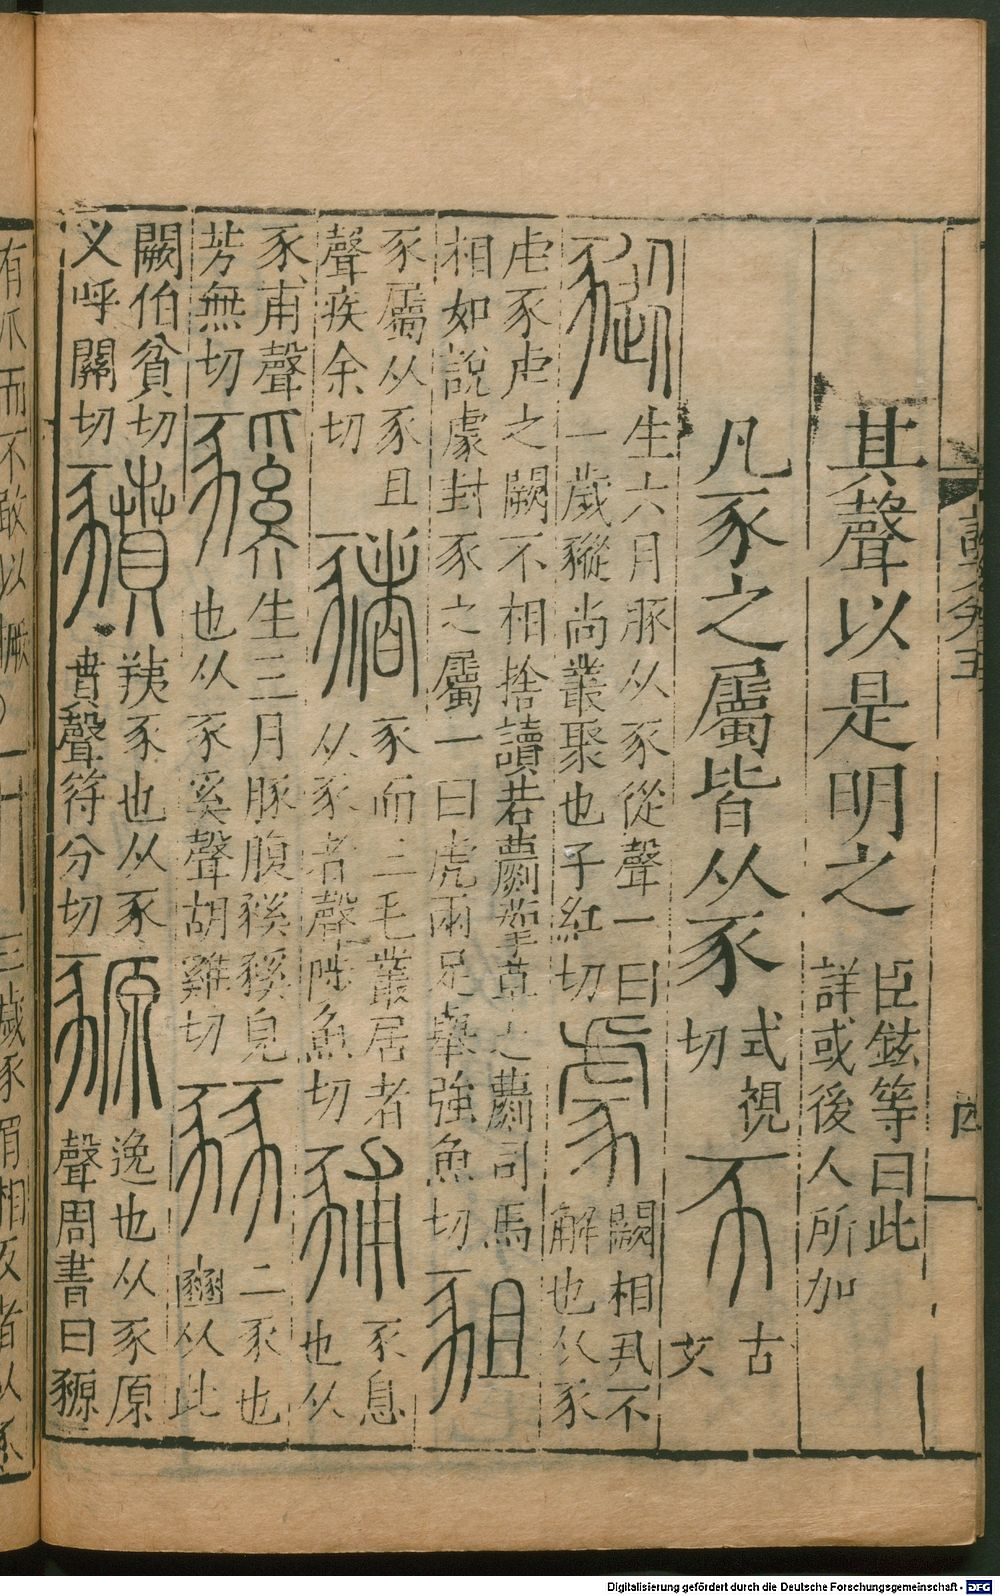 其聲以是明之臣鉉等曰此詳或後人所加
凡豕之屬皆从豕式視切豕古文
豵生六月豚从豕從聲一曰一歲豵尚叢聚也子紅切豦鬭相丮不解也从豕
虍豕虍之鬭不相捨讀若蘮挐草之蘮司馬相如說豦封豕之屬一曰虎兩足舉強魚切豠
豕屬从豕且聲疾余切豬豕而三毛叢居者从豕者聲陟魚切豧豕息也从
豕甫聲芳無切豯生三月豚腹豯豯皃也从豕奚聲胡雞切豩二豕也豳从此
闕伯貧切又呼關切豶羠豕也从豕賁聲符分切豲逸也从豕原聲周書曰豲
有爪而不敢以撅
三歲豕肩相及者
Digitalisierung gefördert durch die Deutsche Forschungsgemeinschaft - DFG